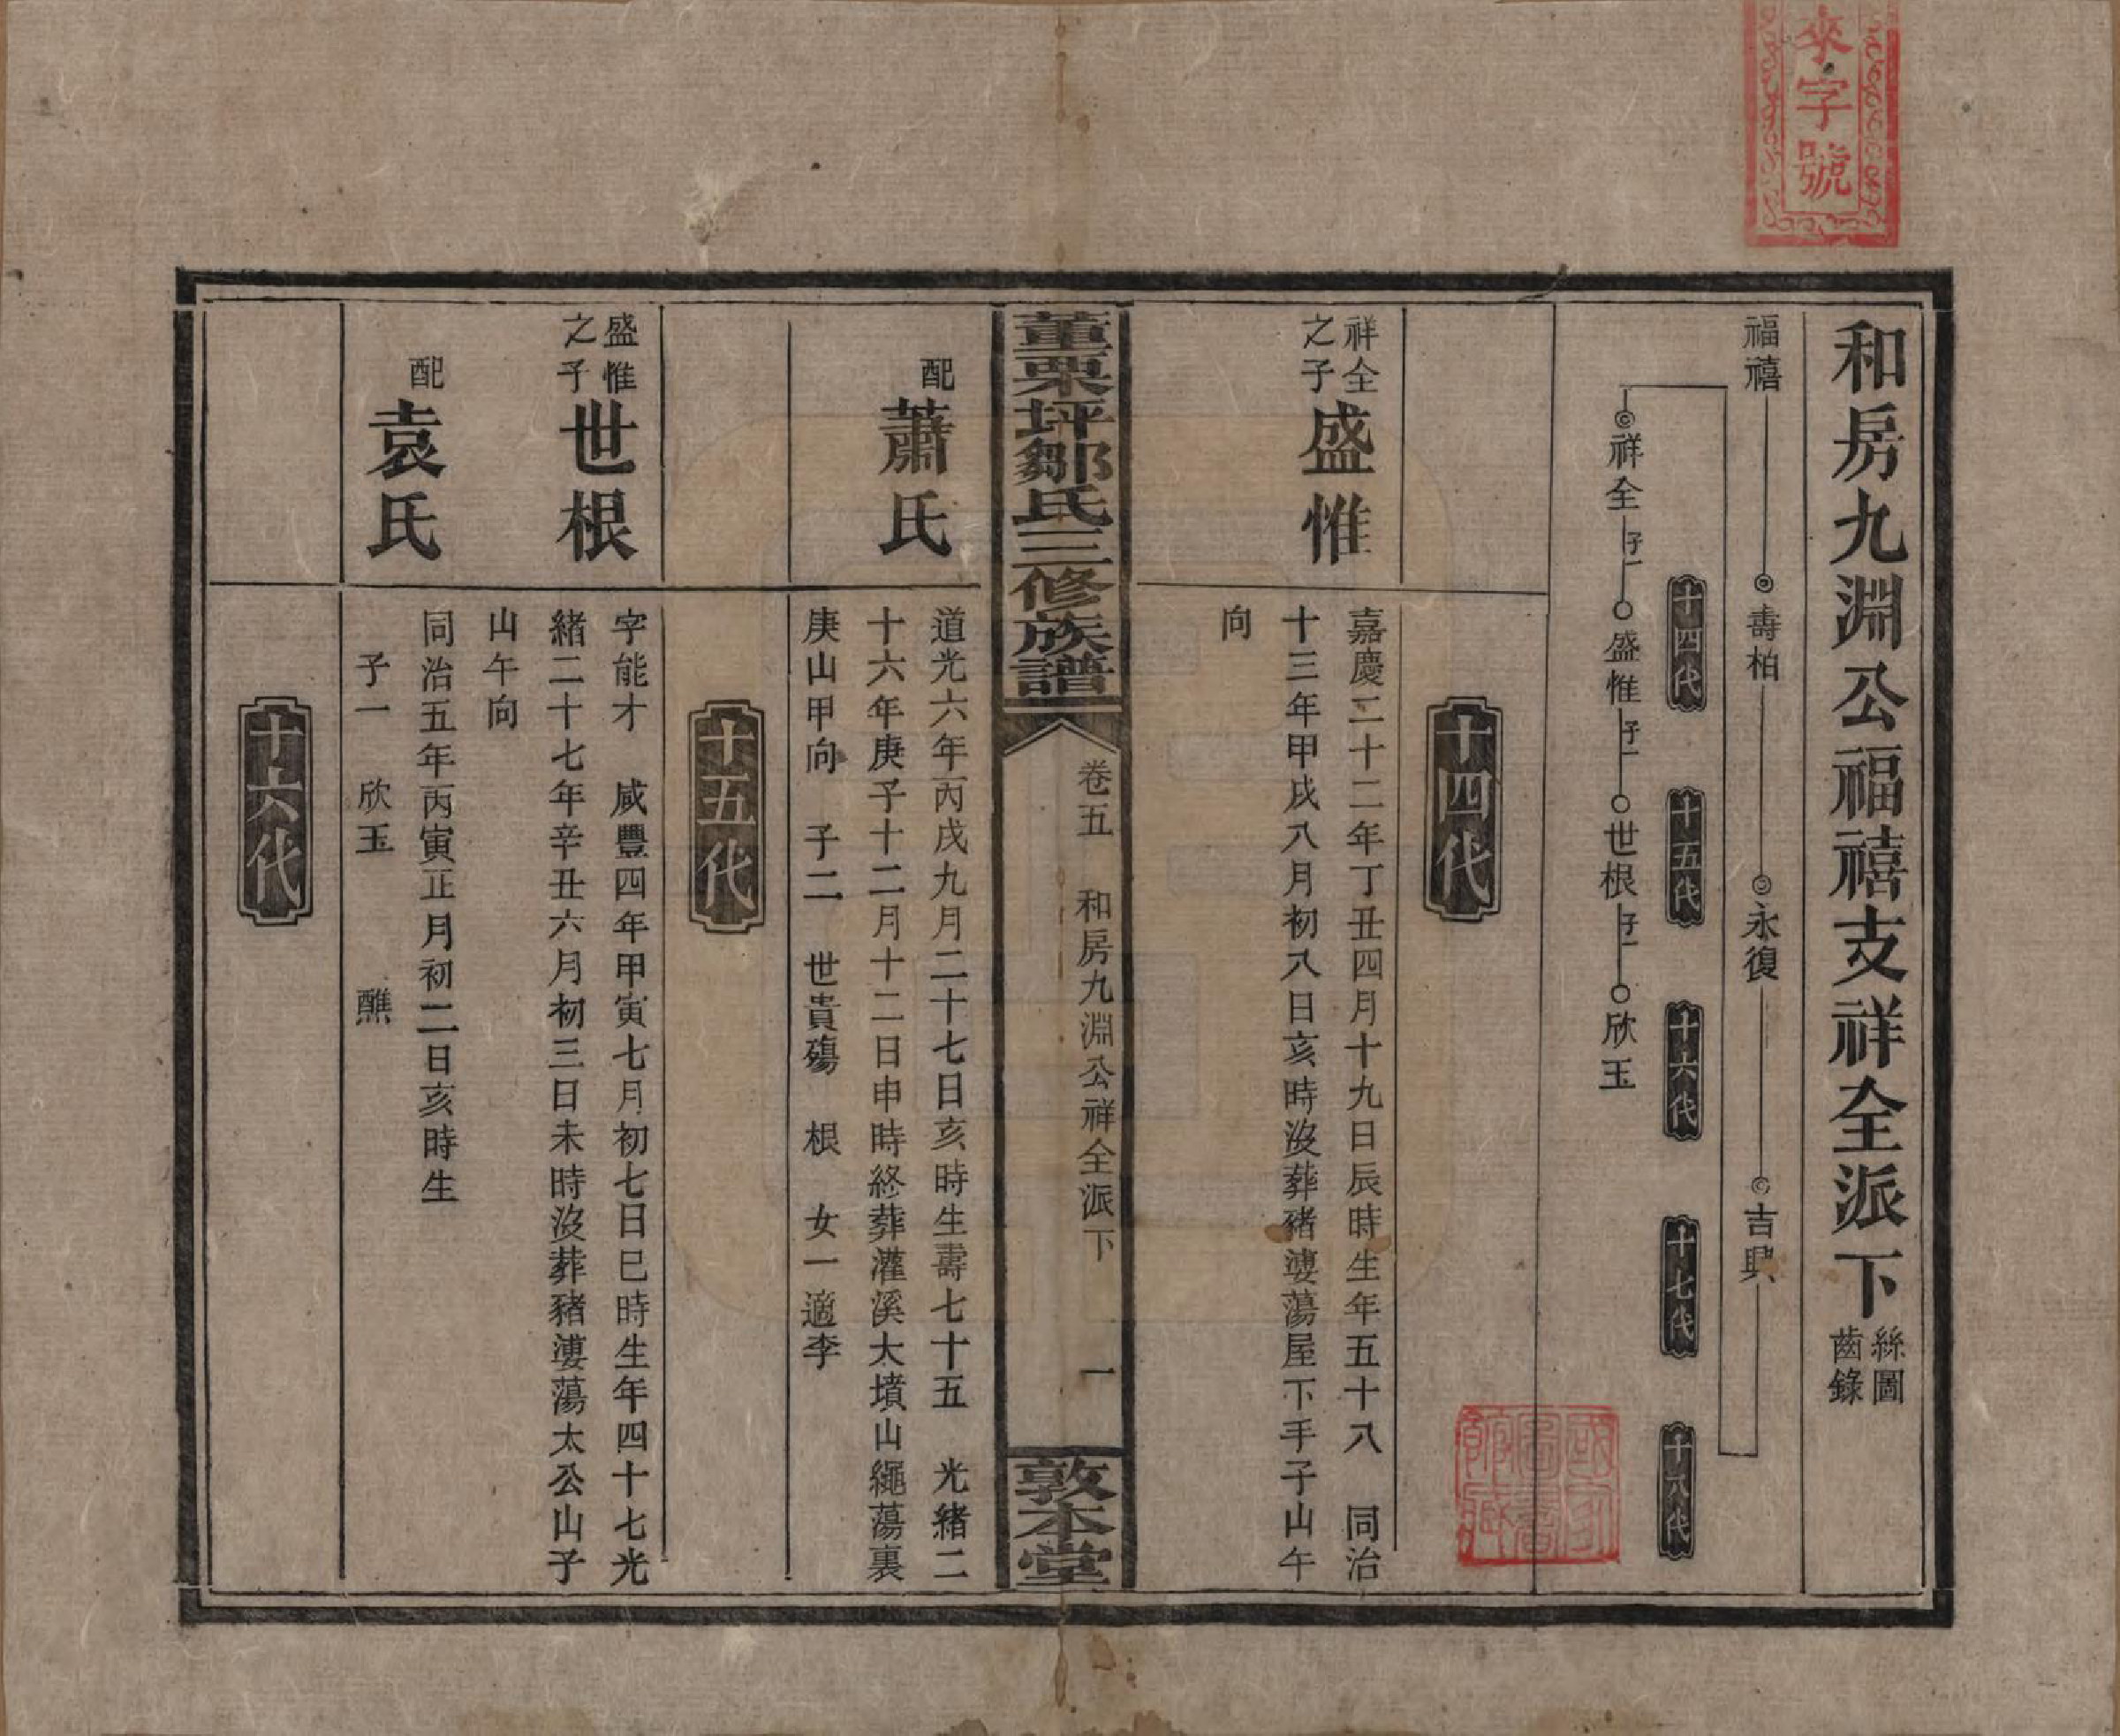 來字號
和房九淵公福禧支祥全派下
絲圖
齒錄
福禧 壽柏 永復 吉興
十四代 十五代 十六代 十七代 十八代
祥全 子一 盛惟 子一 世根 子一 欣玉
國家圖書館藏
十四代
祥全之子 盛惟
嘉慶二十二年丁丑四月十九日辰時生年五十八 同治
十三年甲戌八月初八日亥時沒葬豬漊蕩屋下手子山午
向
董栗坪鄒氏三修族譜
卷五 和房九淵公祥全派下 一
敦本堂
配 蕭氏
道光六年丙戌九月二十七日亥時生壽七十五 光緒二
十六年庚子十二月十二日申時終葬灌溪大墳山繩蕩裏
庚山甲向 子二 世貴殤 根 女一適李
十五代
盛惟之子 世根
字能才 咸豐四年甲寅七月初七日巳時生年四十七光
緒二十七年辛丑六月初三日未時沒葬豬漊蕩太公山子
山午向
配 袁氏
同治五年丙寅正月初二日亥時生
子一 欣玉 醮
十六代